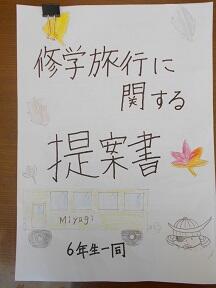 修学旅行に
関する
提案書
Miyagi
6年生一同